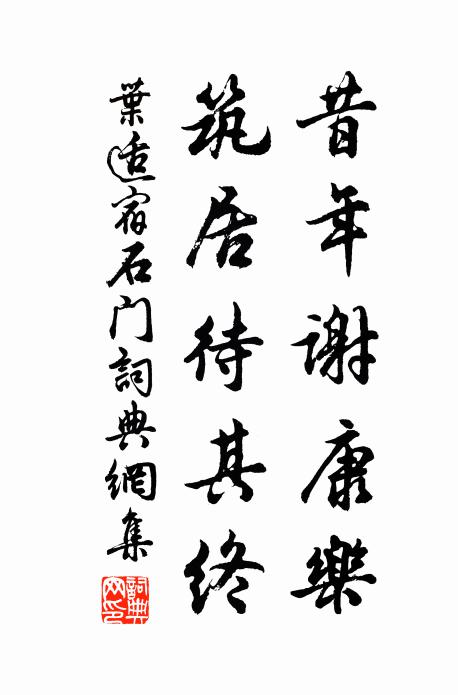 昔年謝康樂
筑居待其終
葉适宿石门詞典網集
詞典网印